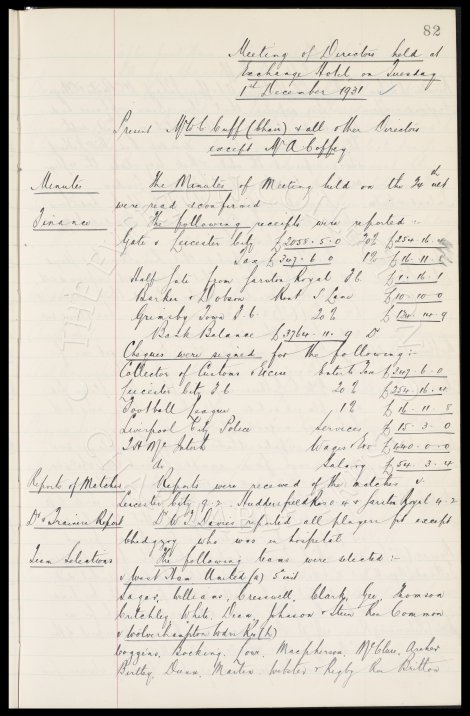 82
Meeting of Directors held at
Exchange Hotel on Tuesday
1st December 1931
Present Mr W C Cuff (Chair) & all other Directors
except Mr A Coffey
Minutes The Minutes of Meeting held on the 24th ult
were read & confirmed
Finance The following receipts were reported :-
Gate v Leicester City £2058. 5. 0 20% £254. 16. 4
Tax £347. 6. 0 1% £16. 11. 8
Half Gate from Res. £. 16. 1
Barker & Dobson Rent £10. 10. 0
Grimsby Town F.C. 20%
Bank Balance £3764. 11. 9 Dr
Cheques were signed for the following :-
Collector of Customs & Excise Ents Tax £347. 6. 0
Leicester City F.C 20% £254. 16. 4
Football League 1% £16. 11. 8
Liverpool City Police Services £15. 3. 0
Wages £440. 0. 0
do Salary £54. 3. 4
Reports of Matches Reports were received of the matches v.
Leicester City 9-2. Huddersfield Res 4-2
Dr & Trainers Report Dr W. J. Davies reported all players fit except
who was in hospital.
Team Selections The following teams were selected :-
v West Ham United (a) 5th inst
Sagar, Williams, Cresswell, Clark, Gee, Thomson
Critchley, White, Dean, Johnson & Stein Res Common
v Wolverhampton Wdrs Res (h)
Coggins, Bocking, Lowe, Macpherson, McClure, Archer
Birtley, Dunn, Martin, Webster & Rigby Res Britton